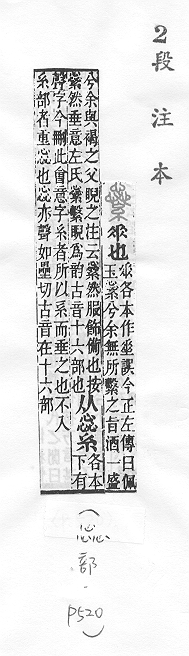 2段注本
繠 𠂹也 𠂹各本作垂誤今正左傳曰佩
玉繠兮余無所繫之旨酒一盛
兮余與褐之父睨之注云繠然服飾備也按
繠然垂意左氏繠繫睨為韵古音十六部也
从惢糸 各本
下有
聲字今刪此會意字糸者所以系而垂之也不入
糸部者重惢也惢亦聲如壘切古音在十六部
(惢部．P520)